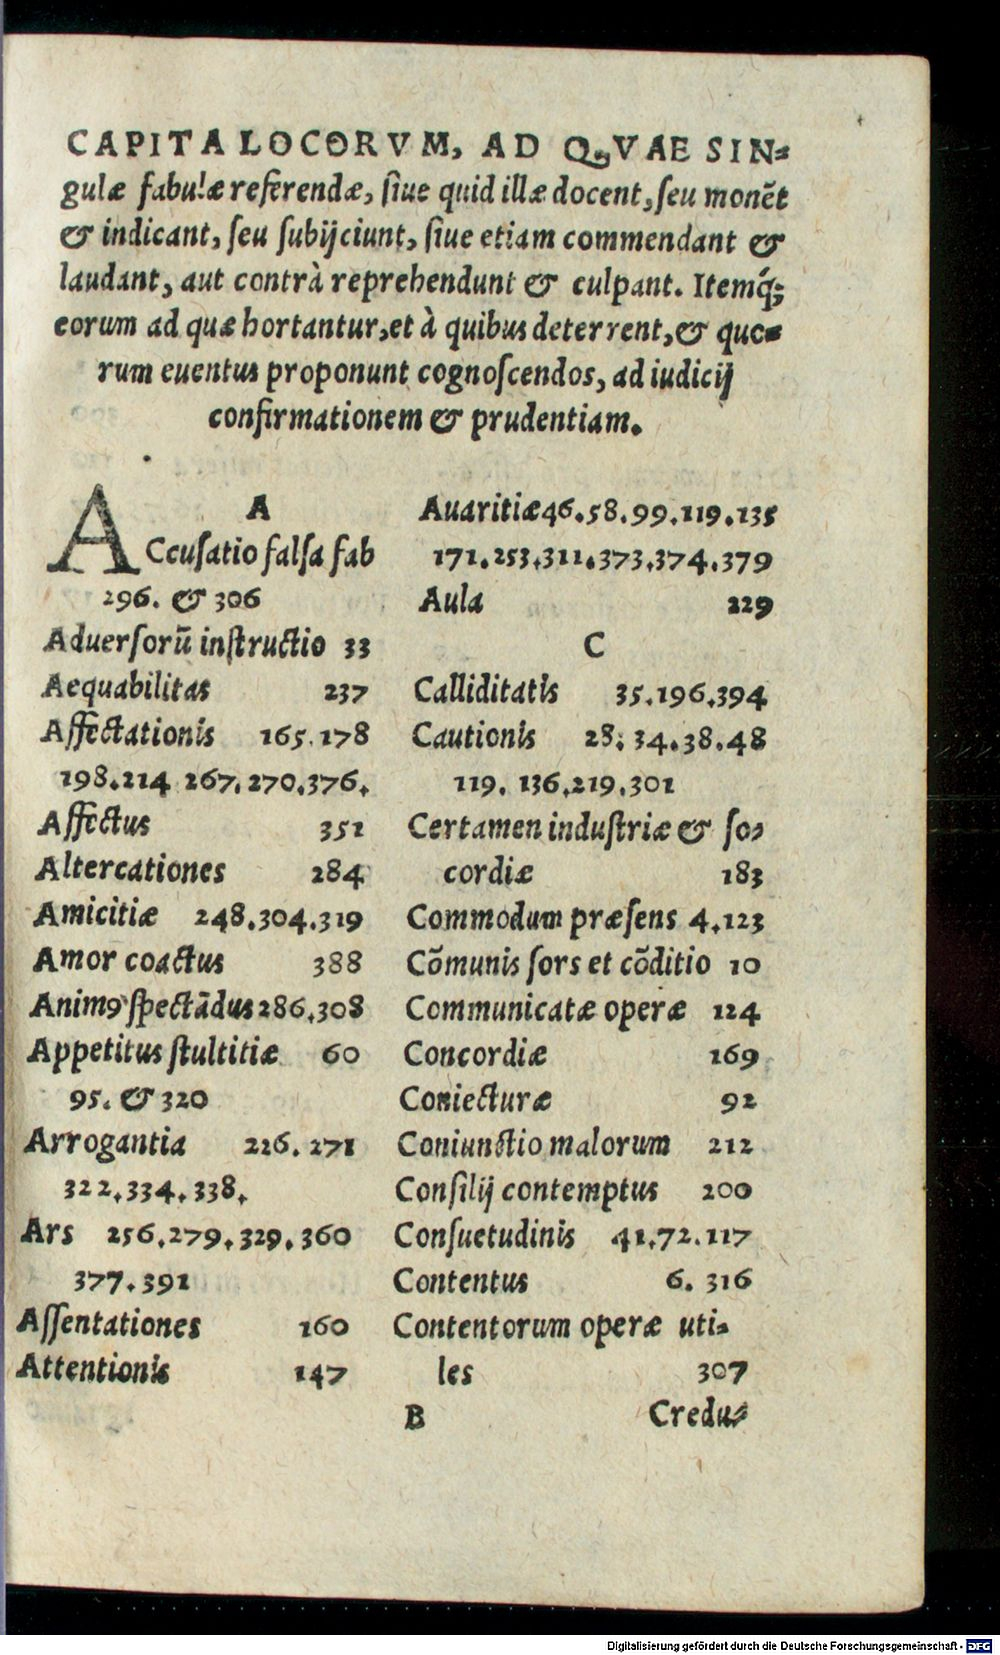 CAPITA LOCORVM, AD QVAE SIN⸗
gulæ fabulæ referendæ, ſiue quid illæ docent, ſeu monẽt
& indicant, ſeu ſubijciunt, ſiue etiam commendant &
laudant, aut contrà reprehendunt & culpant. Itemq́;
eorum ad quæ hortantur, et à quibus deterrent, & quo⸗
rum euentus proponunt cognoſcendos, ad iudicij
confirmationem & prudentiam.
A
ACcuſatio falſa fab
296. & 306
Aduerſorũ inſtructio 33
Aequabilitas 237
Affectationis 165.178
198.214 267.270.376.
Affectus 351
Altercationes 284
Amicitiæ 248.304.319
Amor coactus 388
Animꝰ ſpectãdus 286.308
Appetitus ſtultitiæ 60
95. & 320
Arrogantia 226. 271
322.334.338.
Ars 256.279.329.360
377.391
Aſſentationes 160
Attentionis 147
Auaritiæ 46.58.99.119.135
171.253.311.373.374.379
Aula 229
C
Calliditatis 35.196.394
Cautionis 28. 34.38.48
119. 136.219.301
Certamen induſtriæ & ſo⸗
cordiæ 183
Commodum præſens 4.123
Cõmunis ſors et cõditio 10
Communicatæ operæ 124
Concordiæ 169
Coniecturæ 92
Coniunctio malorum 212
Conſilij contemptus 200
Conſuetudinis 41.72.117
Contentus 6. 316
Contentorum operæ uti⸗
les 307
B Credu⸗
Digitalisierung gefördert durch die Deutsche Forschungsgemeinschaft - DFG